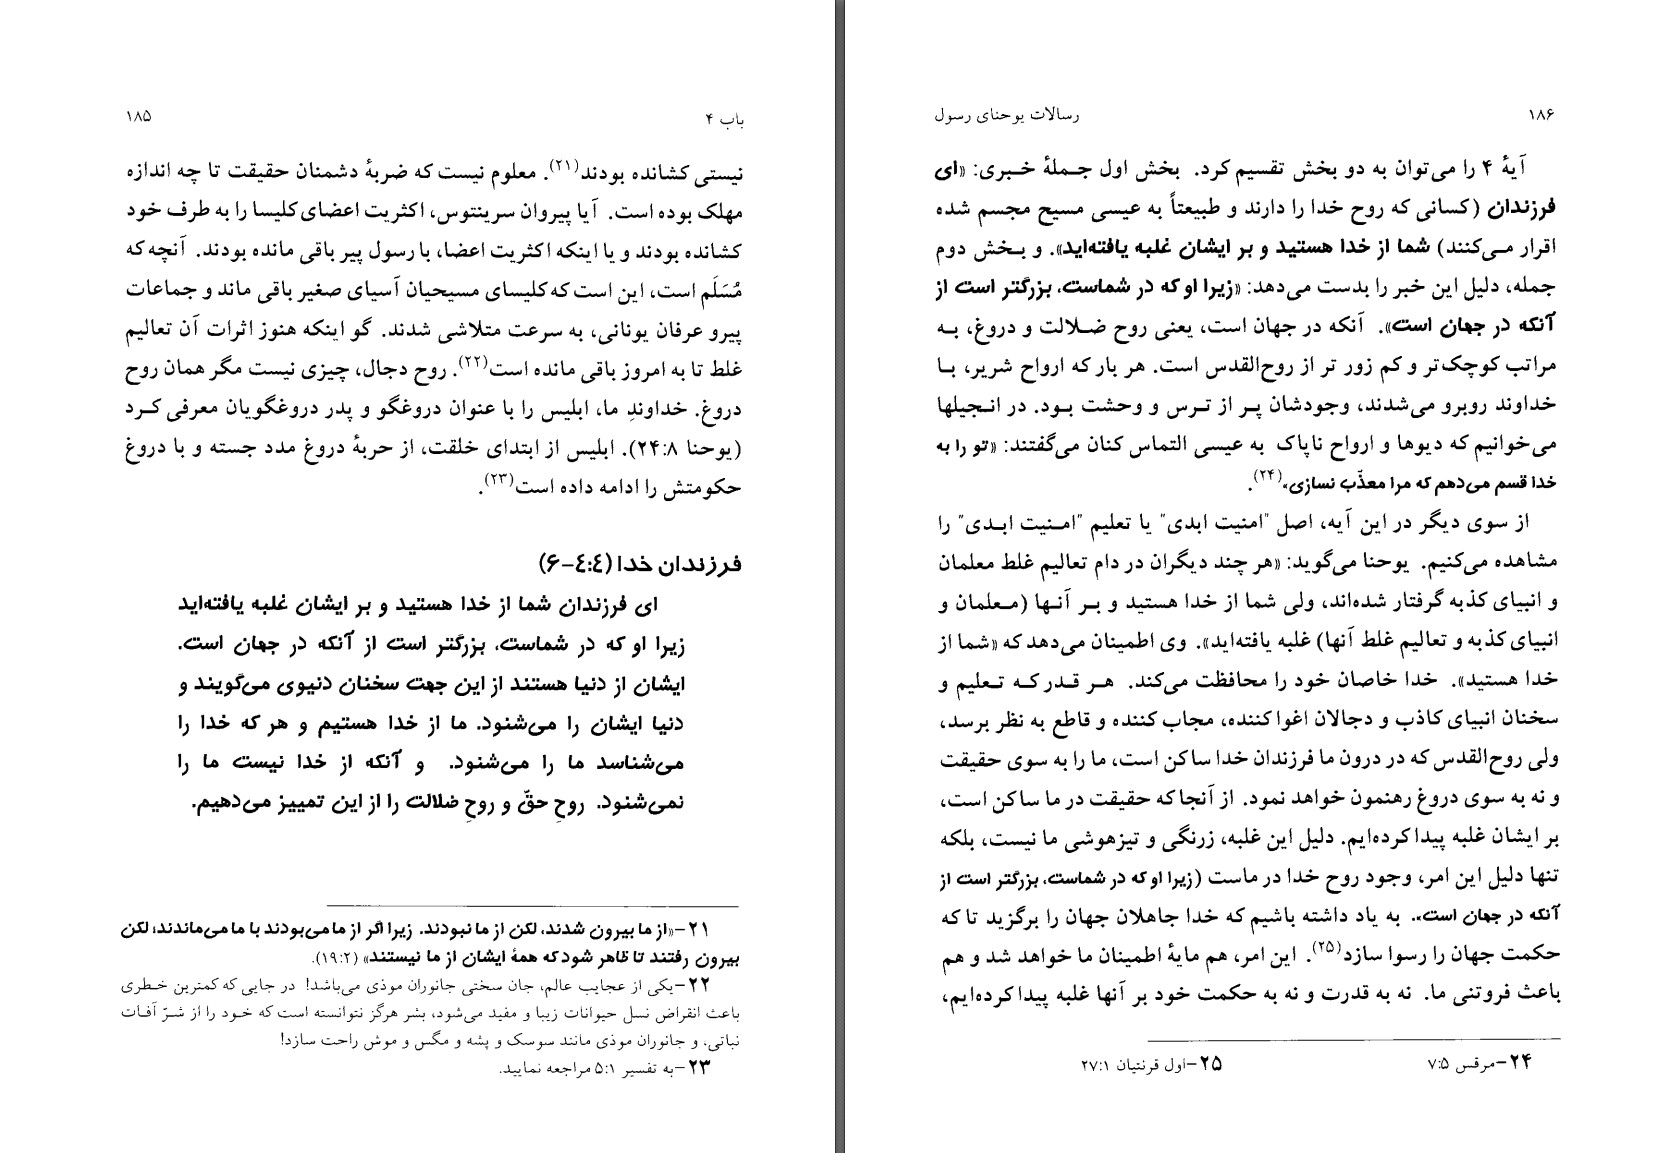 باب ۴
۱۸۵
نیستی کشانده بودند(۲۱). معلوم نیست که ضربهٔ دشمنان حقیقت تا چه اندازه
مهلک بوده است. آیا پیروان سرینتوس، اکثریت اعضای کلیسا را به طرف خود
کشانده بودند و یا اینکه اکثریت اعضا، با رسول پیر باقی مانده بودند. آنچه که
مُسَلَم است، این است که کلیسای مسیحیان آسیای صغیر باقی ماند و جماعات
پیرو عرفان یونانی، به سرعت متلاشی شدند. گو اینکه هنوز اثرات آن تعالیم
غلط تا به امروز باقی مانده است(۲۲). روح دجال، چیزی نیست مگر همان روح
دروغ. خداوندِ ما، ابلیس را با عنوان دروغگو و پدر دروغگویان معرفی کرد
(یوحنا ۲۴:۸). ابلیس از ابتدای خلقت، از حربهٔ دروغ مدد جسته و با دروغ
حکومتش را ادامه داده است(۲۳).
فرزندان خدا (۴:۴-۶)
ای فرزندان شما از خدا هستید و بر ایشان غلبه یافته‌اید
زیرا او که در شماست، بزرگتر است از آنکه در جهان است.
ایشان از دنیا هستند از این جهت سخنان دنیوی می‌گویند و
دنیا ایشان را می‌شنود. ما از خدا هستیم و هر که خدا را
می‌شناسد ما را می‌شنود. و آنکه از خدا نیست ما را
نمی‌شنود. روحِ حقّ و روحِ ضلالت را از این تمییز می‌دهیم.
۲۱-«از ما بیرون شدند، لکن از ما نبودند. زیرا اگر از ما می‌بودند با ما می‌ماندند، لکن
بیرون رفتند تا ظاهر شود که همهٔ ایشان از ما نیستند» (۱۹:۲).
۲۲-یکی از عجایب عالم، جان سختی جانوران موذی می‌باشد! در جایی که کمترین خطری
باعث انقراض نسل حیوانات زیبا و مفید می‌شود، بشر هرگز نتوانسته است که خود را از شرّ آفات
نباتی، و جانوران موذی مانند سوسک و پشه و مگس و موش راحت سازد!
۲۳-به تفسیر ۵:۱ مراجعه نمایید.
۱۸۶
رسالات یوحنای رسول
آیهٔ ۴ را می‌توان به دو بخش تقسیم کرد. بخش اول جملهٔ خبری: «ای
فرزندان (کسانی که روح خدا را دارند و طبیعتاً به عیسی مسیح مجسم شده
اقرار می‌کنند) شما از خدا هستید و بر ایشان غلبه یافته‌اید». و بخش دوم
جمله، دلیل این خبر را بدست می‌دهد: «زیرا او که در شماست، بزرگتر است از
آنکه در جهان است». آنکه در جهان است، یعنی روح ضلالت و دروغ، به
مراتب کوچک‌تر و کم زور تر از روح‌القدس است. هر بار که ارواح شریر، با
خداوند روبرو می‌شدند، وجودشان پر از ترس و وحشت بود. در انجیلها
می‌خوانیم که دیوها و ارواح ناپاک به عیسی التماس کنان می‌گفتند: «تو را به
خدا قسم می‌دهم که مرا معذّب نسازی»(۲۴).
از سوی دیگر در این آیه، اصل "امنیت ابدی" یا تعلیم "امنیت ابدی" را
مشاهده می‌کنیم. یوحنا می‌گوید: «هر چند دیگران در دام تعالیم غلط معلمان
و انبیای کذبه گرفتار شده‌اند، ولی شما از خدا هستید و بر آنها (معلمان و
انبیای کذبه و تعالیم غلط آنها) غلبه یافته‌اید». وی اطمینان می‌دهد که «شما از
خدا هستید». خدا خاصان خود را محافظت می‌کند. هر قدر که تعلیم و
سخنان انبیای کاذب و دجالان اغوا کننده، مجاب کننده و قاطع به نظر برسد،
ولی روح‌القدس که در درون ما فرزندان خدا ساکن است، ما را به سوی حقیقت
و نه به سوی دروغ رهنمون خواهد نمود. از آنجا که حقیقت در ما ساکن است،
بر ایشان غلبه پیدا کرده‌ایم. دلیل این غلبه، زرنگی و تیزهوشی ما نیست، بلکه
تنها دلیل این امر، وجود روح خدا در ماست (زیرا او که در شماست، بزرگتر است از
آنکه در جهان است». به یاد داشته باشیم که خدا جاهلان جهان را برگزید تا که
حکمت جهان را رسوا سازد(۲۵). این امر، هم مایهٔ اطمینان ما خواهد شد و هم
باعث فروتنی ما. نه به قدرت و نه به حکمت خود بر آنها غلبه پیدا کرده‌ایم،
۲۴-مرقس ۷:۵
۲۵-اول قرنتیان ۲۷:۱